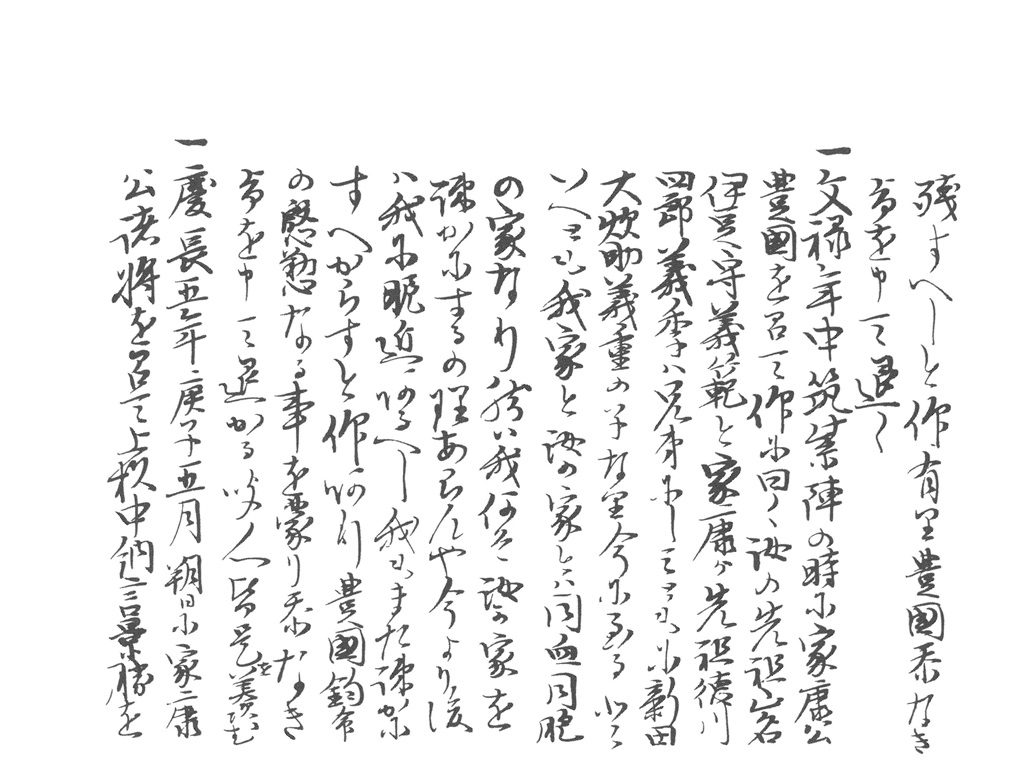 残すへしと仰有里豊國忝なき
旨を申て退く
一文禄二年中筑紫陣の時尓家康公
豊國を召て仰尓曰く汝の先祖山名
伊豆守義範と家康か先祖徳川
四郎義季ハ兄弟尓してともに新田
大炊助義重の子な里今尓至る
いへとも我家と汝の家とハ同血同胞
の家なり然ハ我何そ汝か家を
疎かにするの理あらんや今より後
ハ我尓昵近あるへし我もまた疎かに
すへからすと仰あり豊國鈞命
の慇懃なる事を蒙り忝なき
旨を申て退かる人皆是を美む
一慶長五年庚子五月朔日尓家康
公諸将を召て上杦中納言景勝を